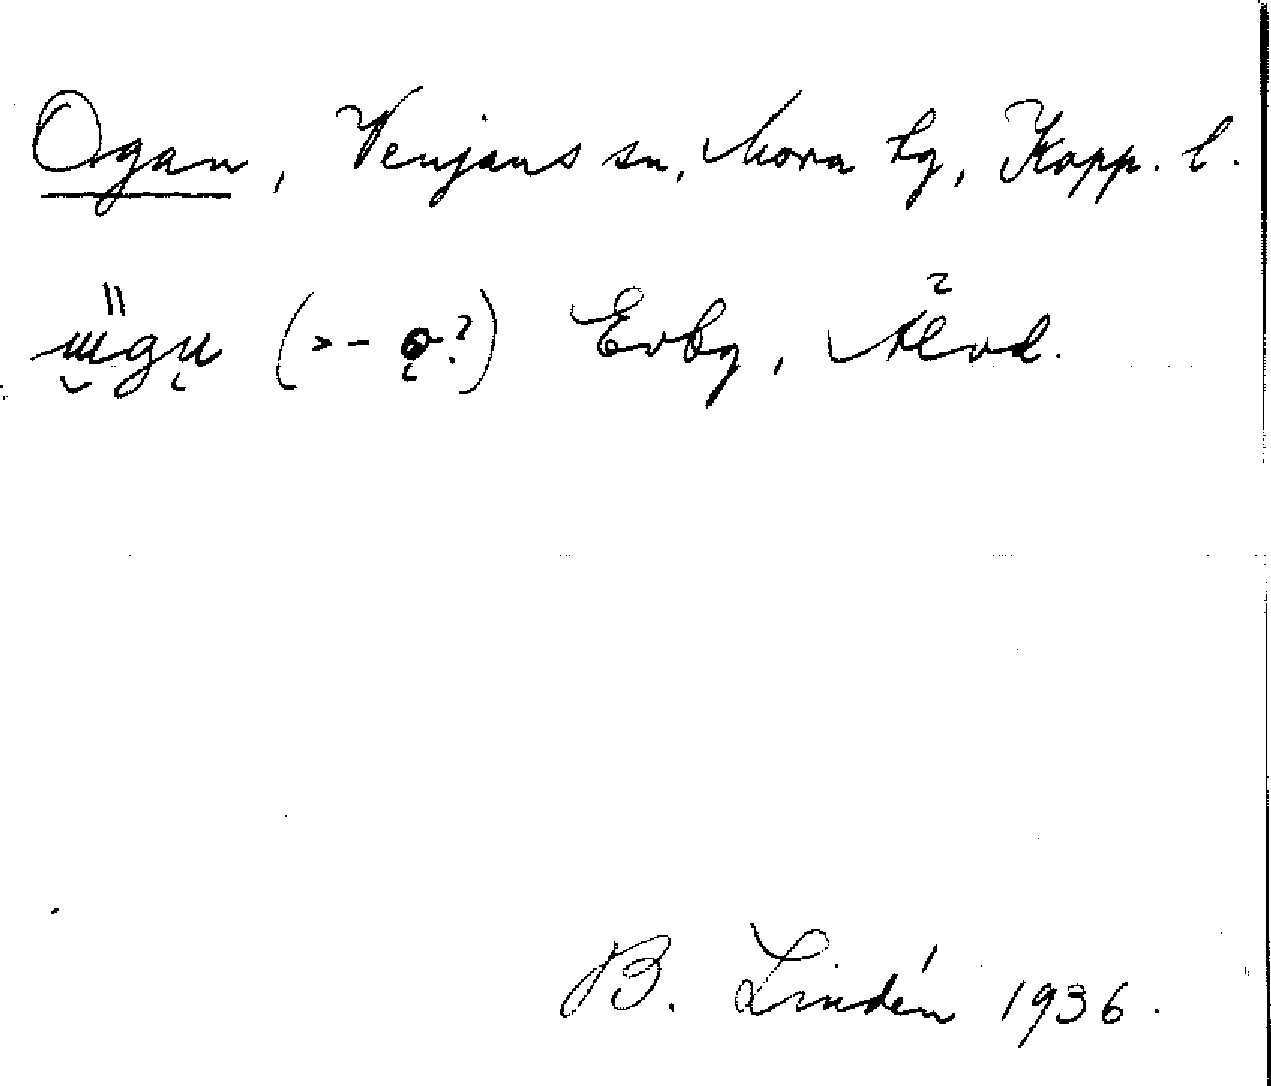 Ogan, Venjans sn, Mora tg, Kopp. l.
Evbg, Älvd.
B. Lindén 1936.